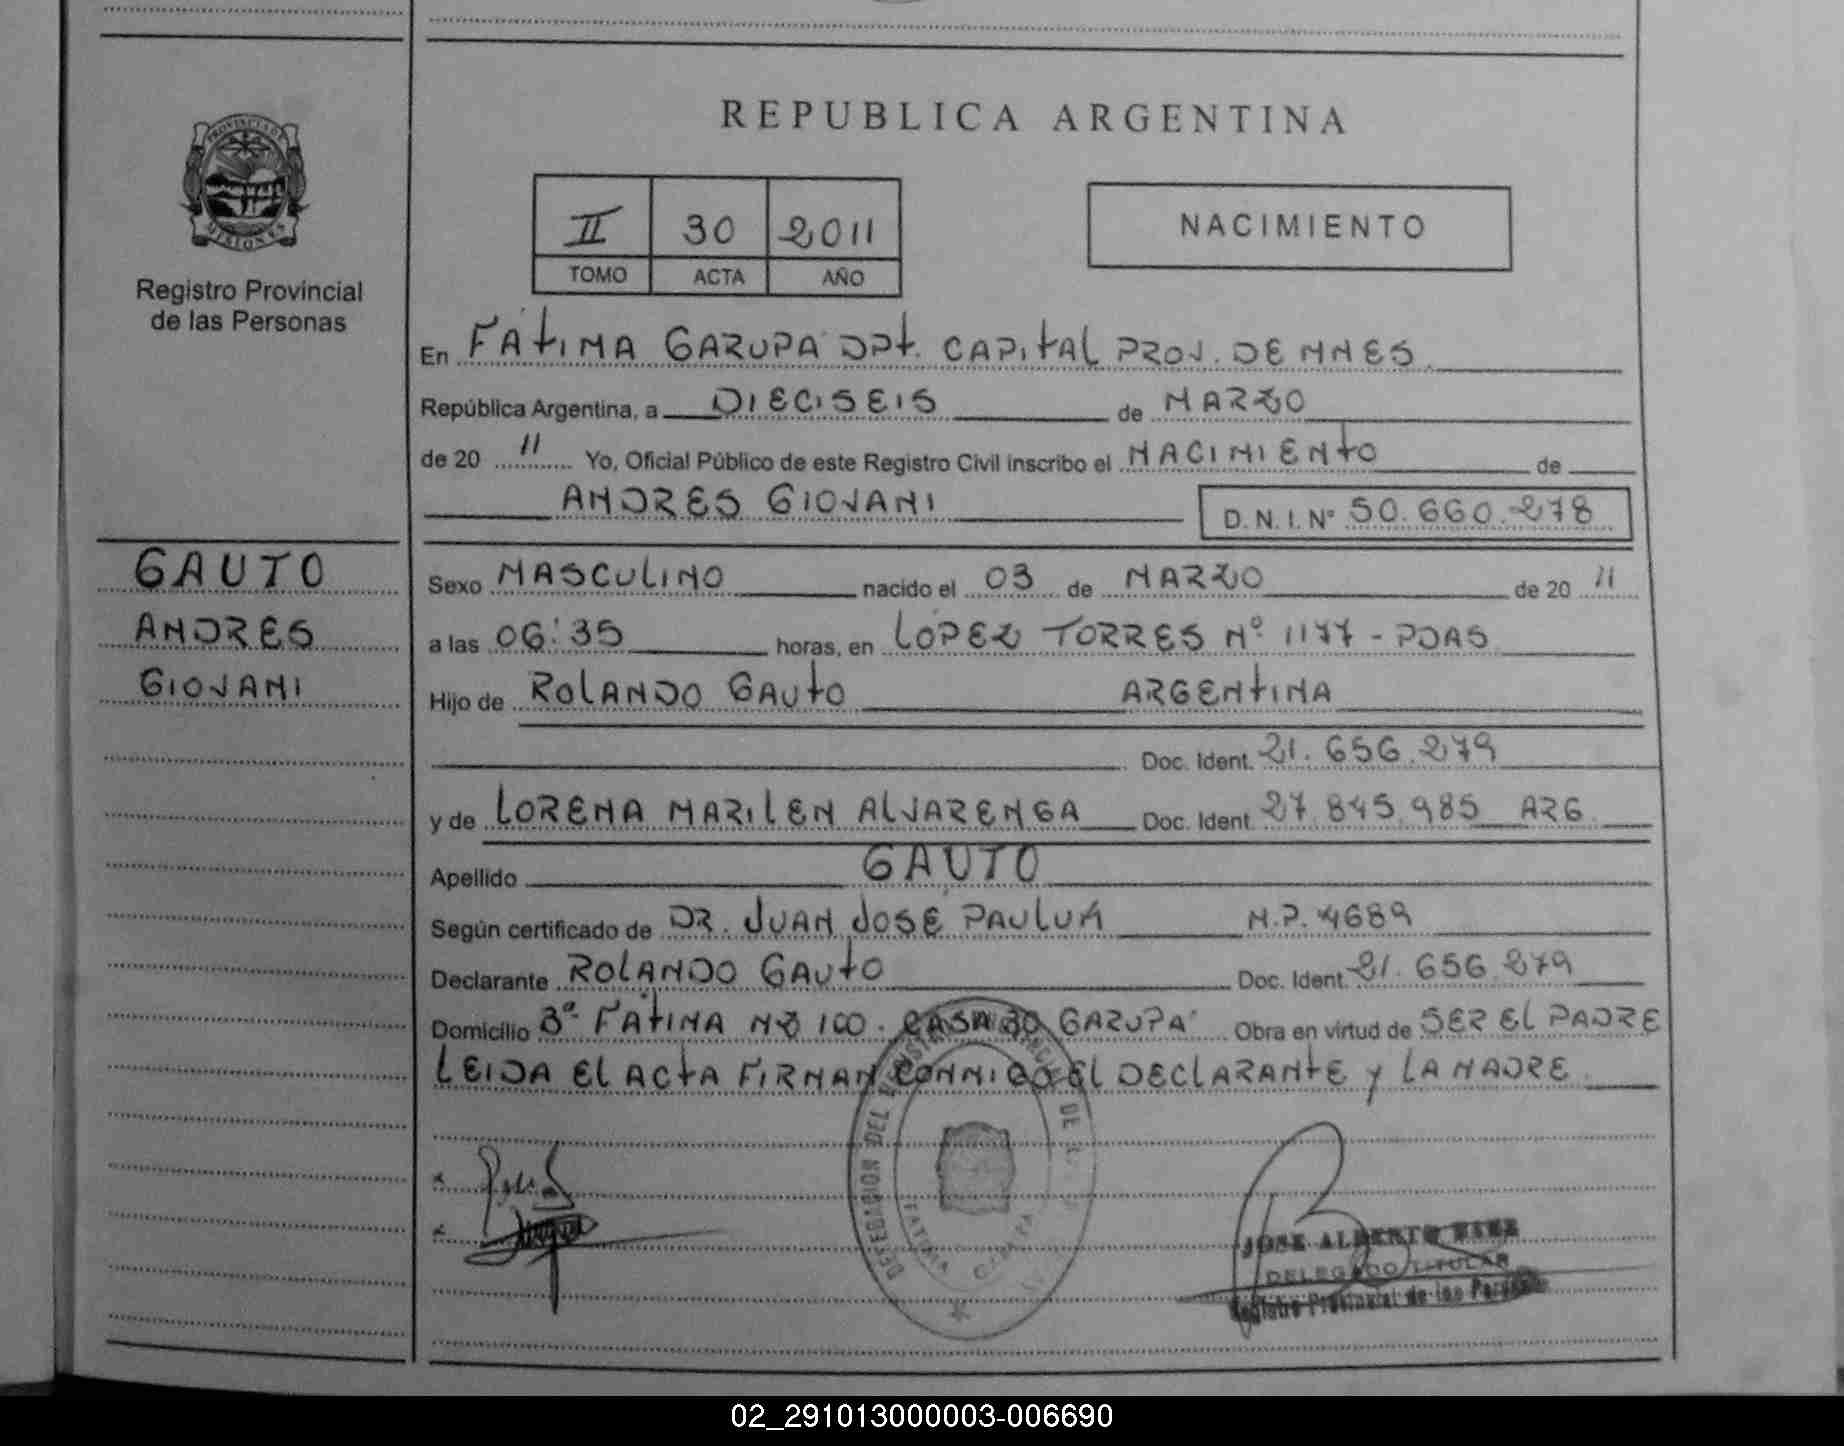 REPUBLICA ARGENTINA
PROVINCIA DE
MISIONES
Registro Provincial
de las Personas
II 30 2011
TOMO ACTA AÑO
NACIMIENTO
En FATIMA GARUPA DPt. CAPITAL PROV. DE MNES
República Argentina, a DIECISEIS de MARZO
de 20 11 Yo, Oficial Público de este Registro Civil inscribo el NACIMIENTO de
ANDRES GIOVANI D.N.I.Nº 50.660.278
GAUTO
ANDRES
GIOVANI
Sexo MASCULINO nacido el 03 de MARZO de 20 11
a las 06:35 horas, en LOPEZ TORRES Nº 1177 - PDAS
Hijo de ROLANDO GAUTO ARGENTINA
Doc. Ident. 21.656.279
y de LORENA MARILEN ALVARENGA Doc. Ident. 27.845.985 ARG.
Apellido GAUTO
Según certificado de DR. JUAN JOSE PAULUK M.P. 4689
Declarante ROLANDO GAUTO Doc. Ident. 21.656.279
Domicilio Bº FATIMA MZ 100. CASA 30 GARUPA Obra en virtud de SER EL PADRE
LEIDA EL ACTA FIRMAN CONMIGO EL DECLARANTE y LA MADRE
DELEGACION DEL
DE
FATIMA
JOSE ALBERTO
DELEGADO TITULAR
Registro Provincial de las Personas
02_291013000003-006690